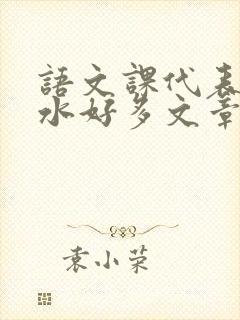 語文課代表
水好多文章
袁小荣